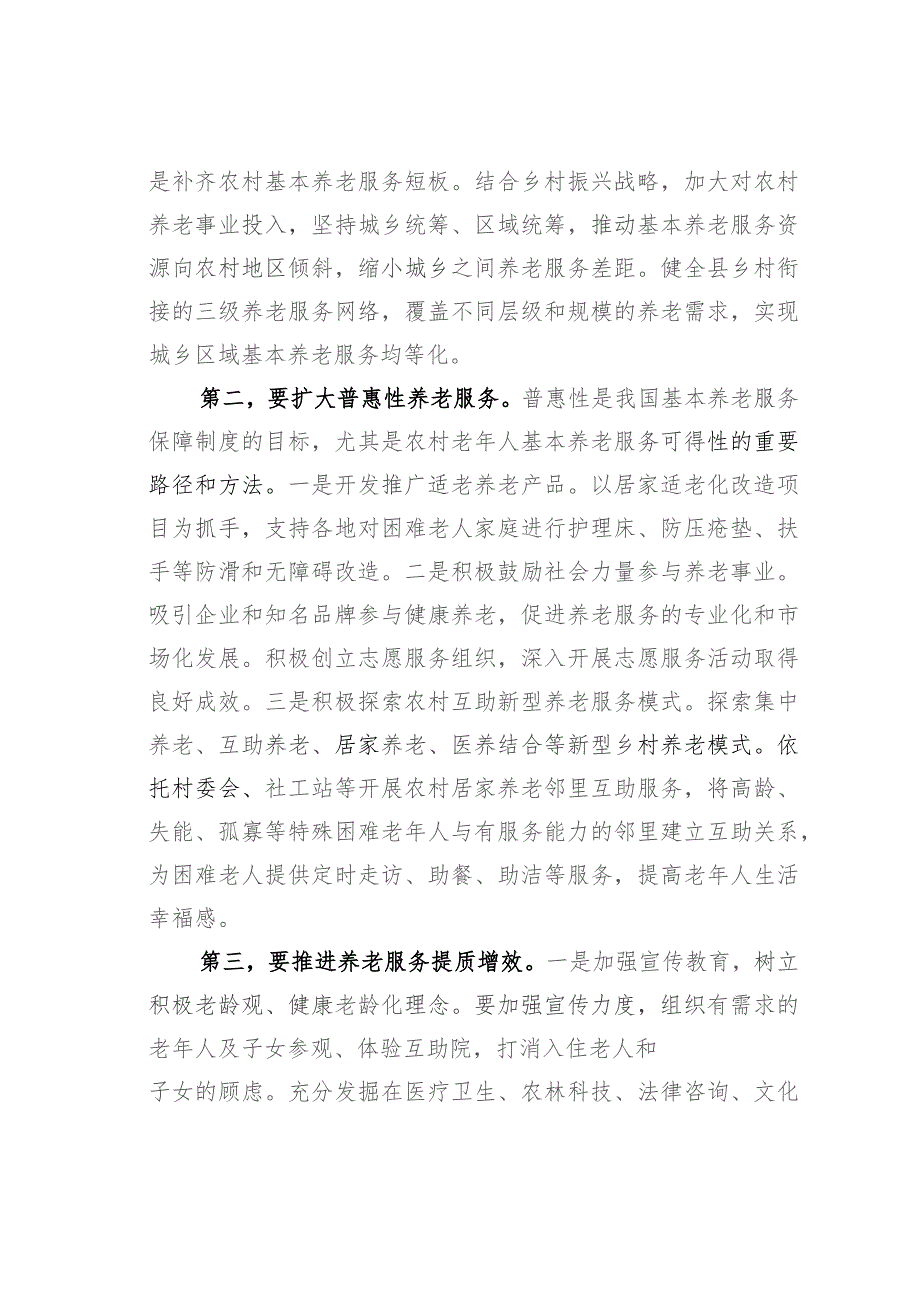 是补齐农村基本养老服务短板。结合乡村振兴战略，加大对农村
养老事业投入，坚持城乡统筹、区域统筹，推动基本养老服务资
源向农村地区倾斜，缩小城乡之间养老服务差距。健全县乡村衔
接的三级养老服务网络，覆盖不同层级和规模的养老需求，实现
城乡区域基本养老服务均等化。
第二，要扩大普惠性养老服务。普惠性是我国基本养老服务
保障制度的目标，尤其是农村老年人基本养老服务可得性的重要
路径和方法。一是开发推广适老养老产品。以居家适老化改造项
目为抓手，支持各地对困难老人家庭进行护理床、防压疮垫、扶
手等防滑和无障碍改造。二是积极鼓励社会力量参与养老事业。
吸引企业和知名品牌参与健康养老，促进养老服务的专业化和市
场化发展。积极创立志愿服务组织，深入开展志愿服务活动取得
良好成效。三是积极探索农村互助新型养老服务模式。探索集中
养老、互助养老、居家养老、医养结合等新型乡村养老模式。依
托村委会、社工站等开展农村居家养老邻里互助服务，将高龄、
失能、孤寡等特殊困难老年人与有服务能力的邻里建立互助关系，
为困难老人提供定时走访、助餐、助洁等服务，提高老年人生活
幸福感。
第三，要推进养老服务提质增效。一是加强宣传教育，树立
积极老龄观、健康老龄化理念。要加强宣传力度，组织有需求的
老年人及子女参观、体验互助院，打消入住老人和
子女的顾虑。充分发掘在医疗卫生、农林科技、法律咨询、文化